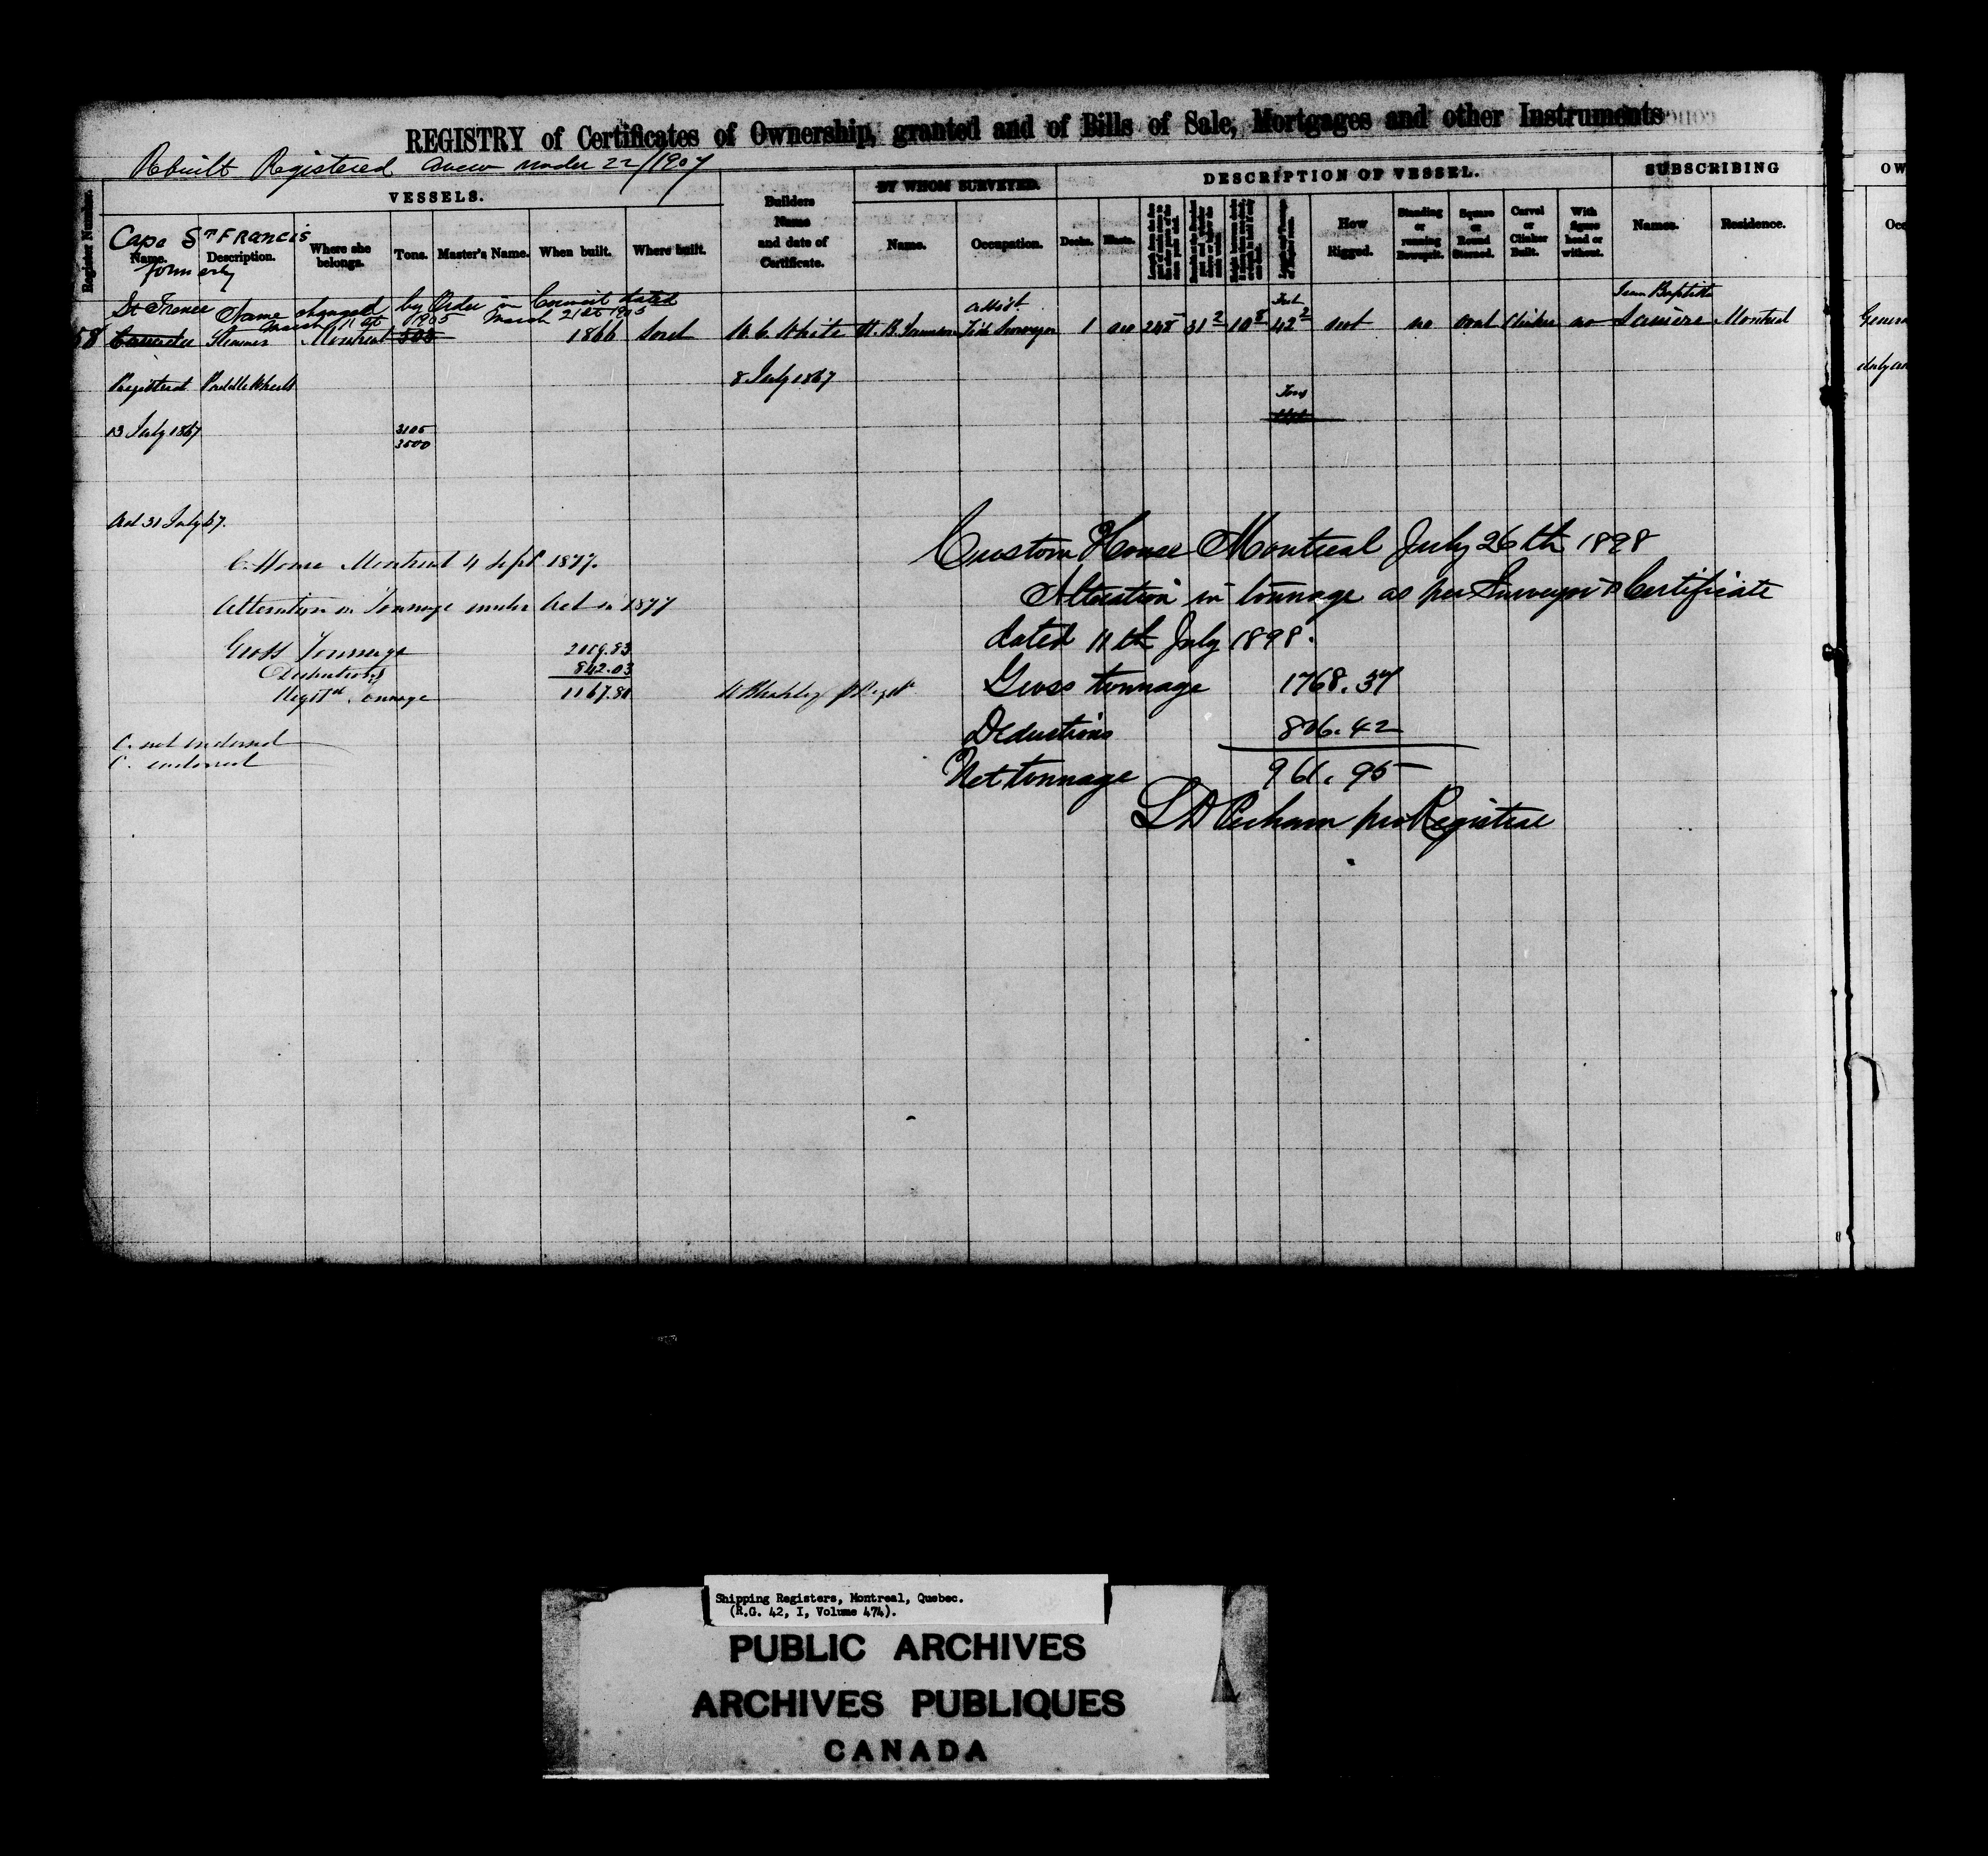 REGISTRY of Certificates of Ownership, granted and of Bills of Sale, Mortgages and other Instruments
Rebuilt Registered anew under 22/1907
VESSELS.
BY WHOM SURVEYED.
DESCRIPTION OF VESSEL.
SUBSCRIBING
OW
Register Number.
Cape St FRANCIS
Name.
Description.
Where she belongs.
Tons.
Master's Name.
When built.
Where built.
Builders Name and date of Certificate.
Name.
Occupation.
Decks.
Masts.
How Rigged.
Standing or running Bowsprit.
Square or Round Sterned.
Carvel or Clinker Built.
With figure head or without.
Names.
Residence.
Occ
formerly
St France Name changed by Order in Council dated
March 11th 1905 March 21st 1905
58 Steamer Montreal 1866 Sorel W. C. White Assist. Tide Surveyor 1 no 248 31 2 10 8 Feet 42 2 not no oval Clinker no Jean Baptiste Lamère Montreal
Genera
Registered Paddle Wheels
8 July 1867
only an
Tons
13 July 1867
3105
3500
31 July 67.
C. House Montreal 4 Sept 1877.
Alteration in Tonnage under Act in 1877
Gross Tonnage 2009.83
Deductions 842.03
Registd. Tonnage 1167.80
C. not endorsed
C. endorsed
Custom House Montreal July 26th 1898
Alteration in tonnage as per Surveyor's Certificate
dated 11th July 1898.
Gross tonnage 1768.37
Deductions 806.42
Net tonnage 961.95
Perham pro Registrar
Shipping Registers, Montreal, Quebec.
(R.G. 42, I, Volume 474).
PUBLIC ARCHIVES
ARCHIVES PUBLIQUES
CANADA